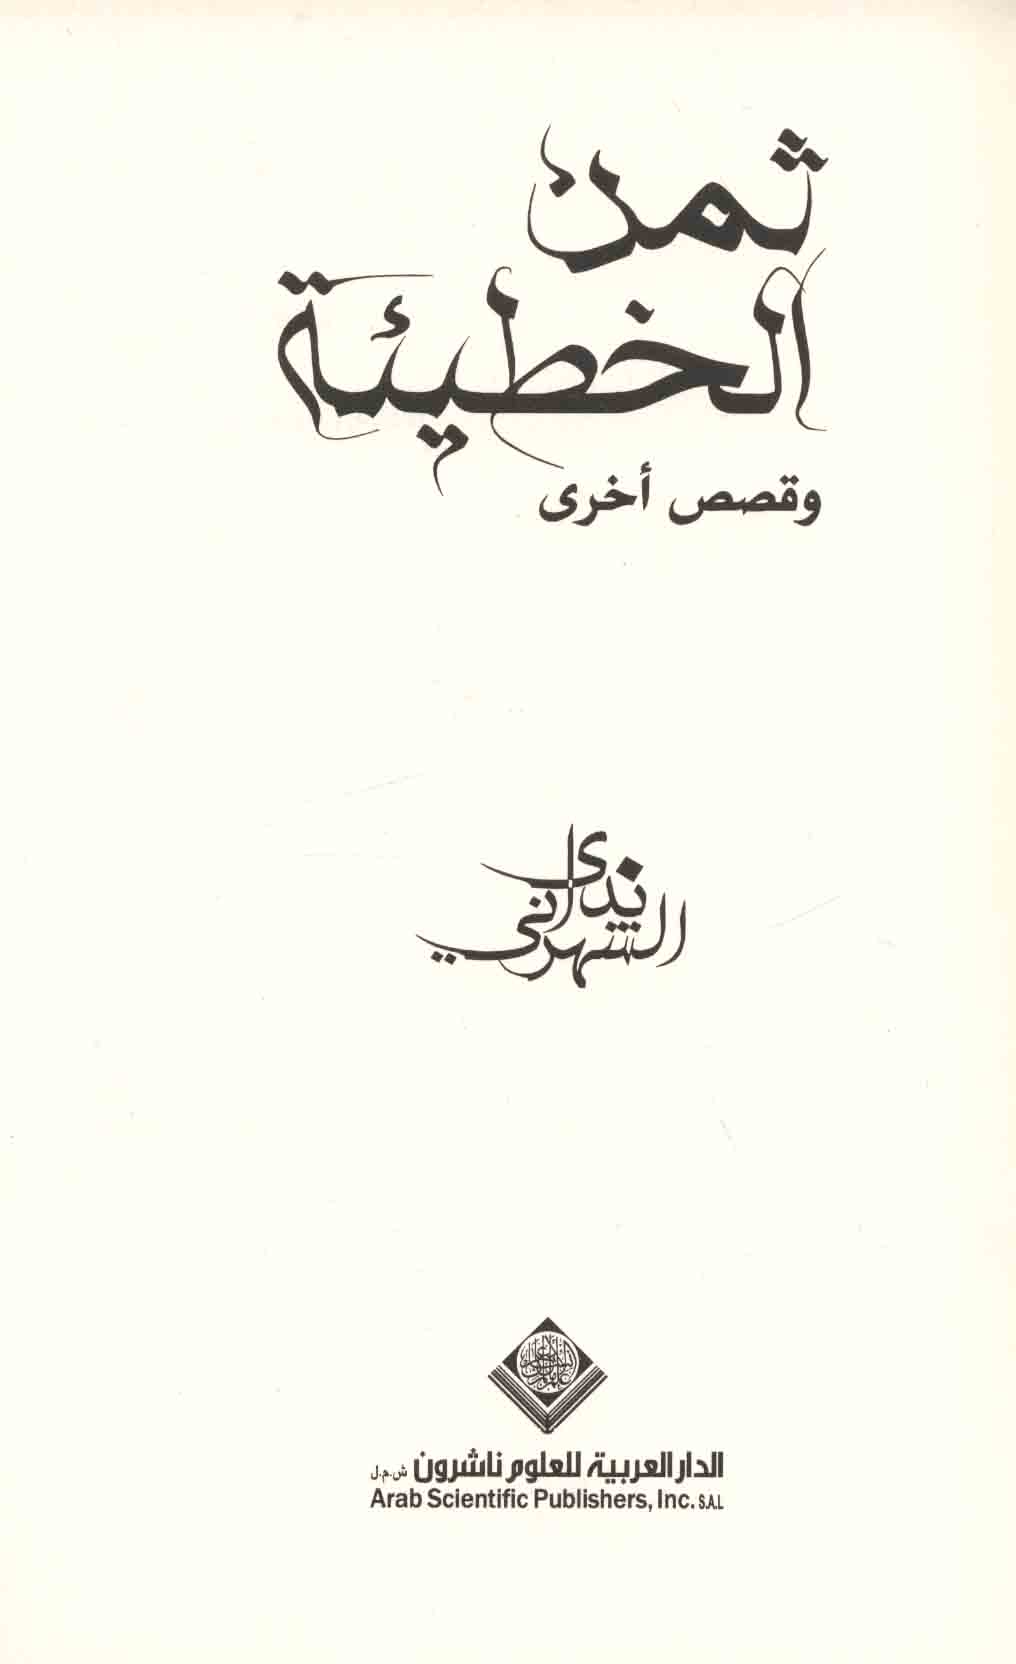 ثمن
الخطيئة
وقصص أخرى
ندى
الشهراني
الدار العربية للعلوم ناشرون ش.م.ل
Arab Scientific Publishers, Inc. S.A.L